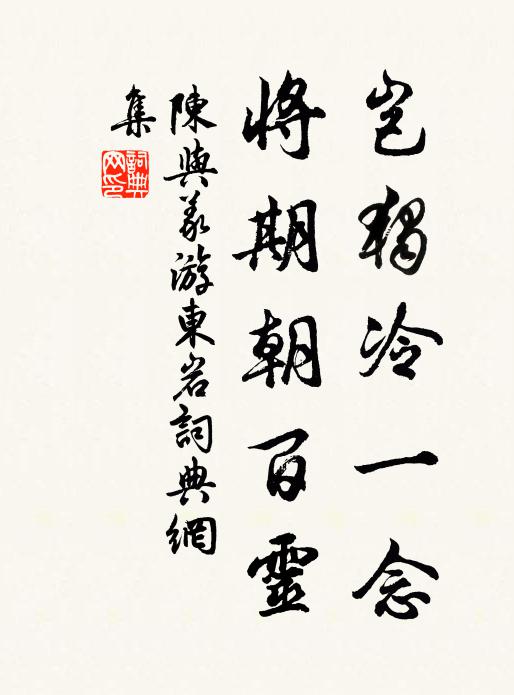 岂獨冷一念
將期朝百靈
陳與義游東岩詞典網
集
詞典网印